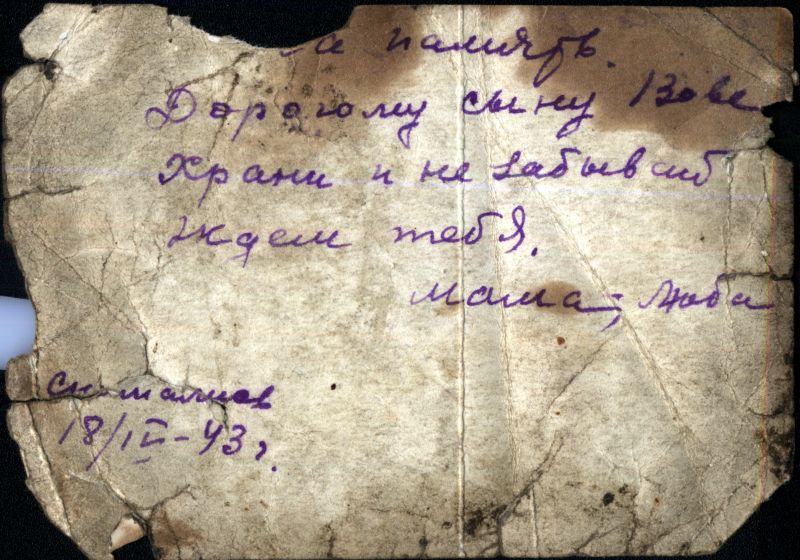 на память.
Дорогому сыну Вове
Храни и не забывай
ждем тебя.
Мама, Люба
снимались
18/III-43 г.